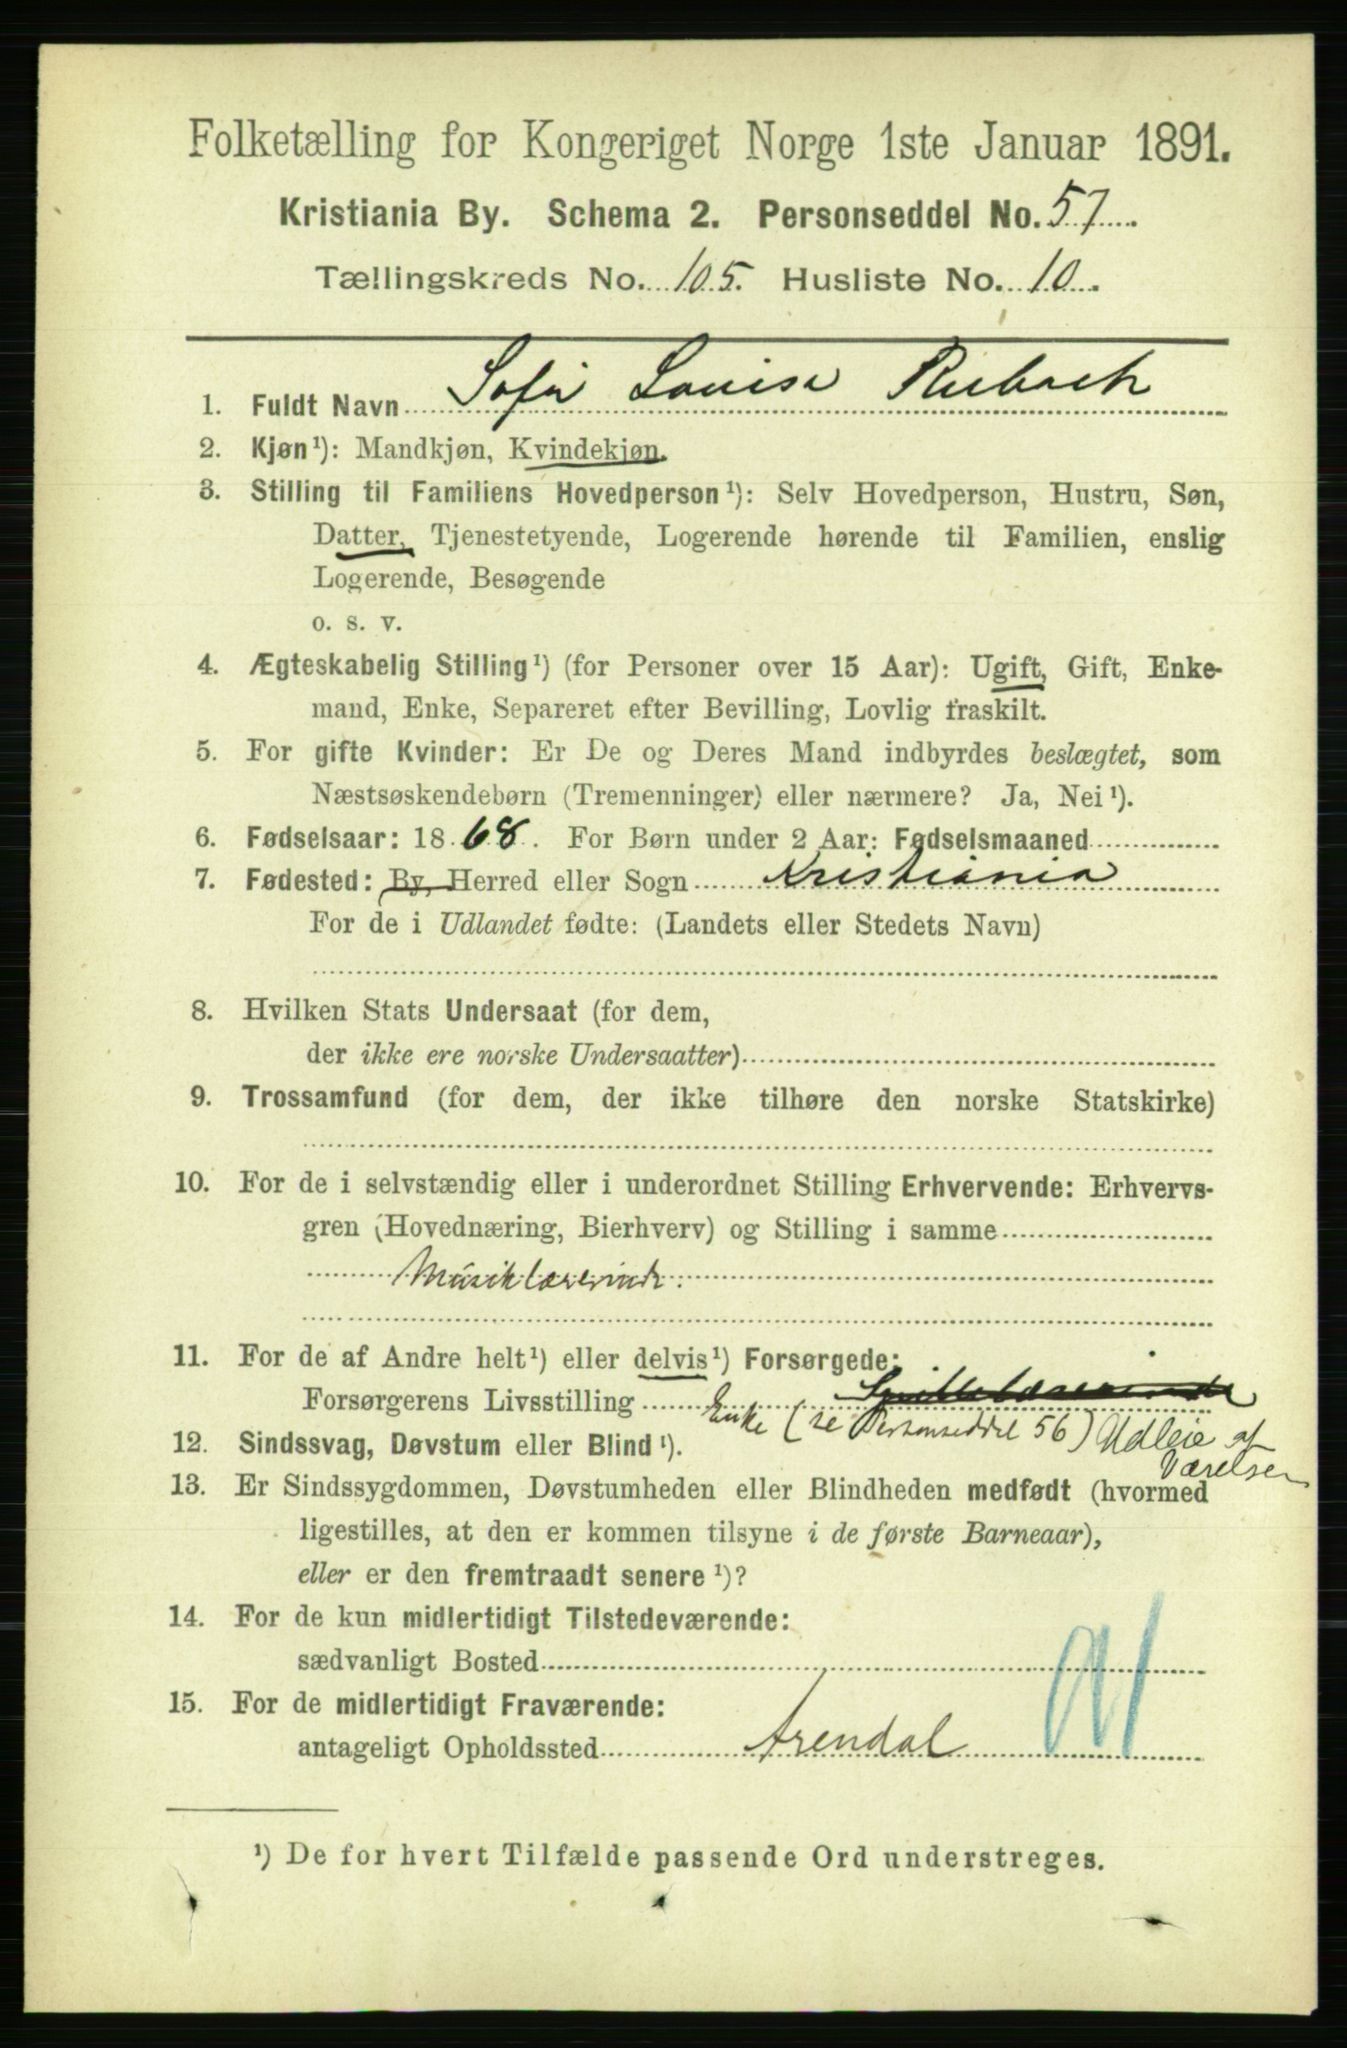 Folketælling for Kongeriget Norge 1ste Januar 1891.
Kristiania By. Schema 2. Personseddel No. 57
Tællingskreds No. 105. Husliste No. 10.
1. Fuldt Navn Sofie Louise Rubach
2. Kjøn¹): Mandkjøn, Kvindekjøn.
3. Stilling til Familiens Hovedperson¹): Selv Hovedperson, Hustru, Søn,
Datter, Tjenestetyende, Logerende hørende til Familien, enslig
Logerende, Besøgende
o. s. v.
4. Ægteskabelig Stilling¹) (for Personer over 15 Aar): Ugift, Gift, Enke-
mand, Enke, Separeret efter Bevilling, Lovlig fraskilt.
5. For gifte Kvinder: Er De og Deres Mand indbyrdes beslægtet, som
Næstsøskendebørn (Tremenninger) eller nærmere? Ja, Nei¹).
6. Fødselsaar: 1868. For Børn under 2 Aar: Fødselsmaaned
7. Fødested: By, Herred eller Sogn Kristiania
For de i Udlandet fødte: (Landets eller Stedets Navn)
8. Hvilken Stats Undersaat (for dem,
der ikke ere norske Undersaatter)
9. Trossamfund (for dem, der ikke tilhøre den norske Statskirke)
10. For de i selvstændig eller i underordnet Stilling Erhvervende: Erhvervs-
gren (Hovednæring, Bierhverv) og Stilling i samme
Musiklærerinde.
11. For de af Andre helt¹) eller delvis¹) Forsørgede:
Forsørgerens Livsstilling Spillelærerinde
Enke (se Personseddel 56) Udleie af
Værelser
12. Sindssvag, Døvstum eller Blind¹).
13. Er Sindssygdommen, Døvstumheden eller Blindheden medfødt (hvormed
ligestilles, at den er kommen tilsyne i de første Barneaar),
eller er den fremtraadt senere¹)?
14. For de kun midlertidigt Tilstedeværende:
sædvanligt Bosted
15. For de midlertidigt Fraværende:
antageligt Opholdssted Arendal
¹) De for hvert Tilfælde passende Ord understreges.